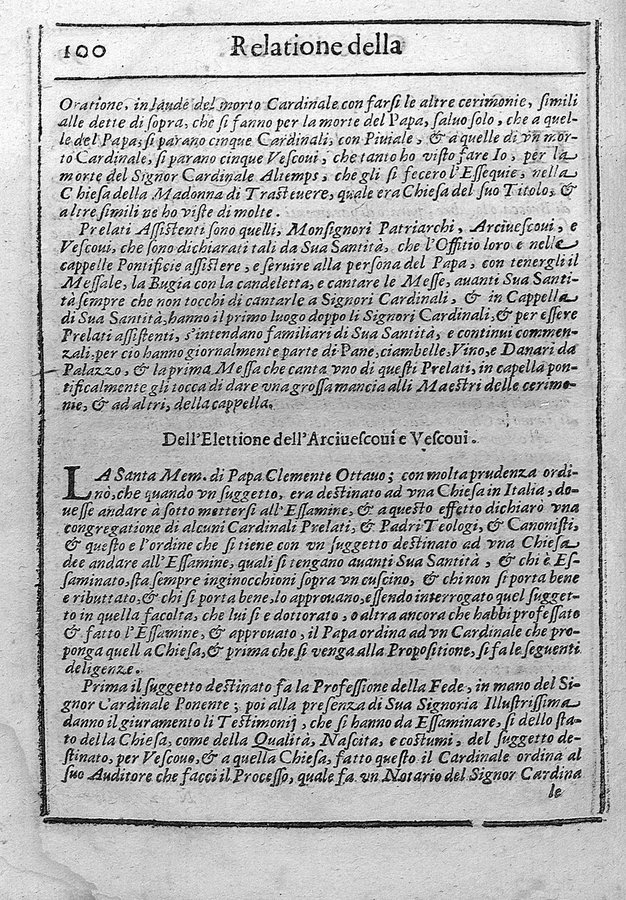 100 Relatione della
Oratione, in laude del morto Cardinale con farsi le altre cerimonie, simili
alle dette di sopra, che si fanno per la morte del Papa, saluo solo, che a quel-
le del Papa, si parano cinque Cardinali, con Piuiale, & a quelle di vn mor-
to Cardinale, si parano cinque Vescoui, che tanto ho visto fare Io, per la
morte del Signor Cardinale Altemps, che gli si fecero l'Essequie, nella
Chiesa della Madonna di Trasteuere, quale era Chiesa del suo Titolo, &
altre simili ne ho viste di molte.
Prelati Assistenti sono quelli, Monsignori Patriarchi, Arciuescoui, e
Vescoui, che sono dichiarati tali da Sua Santità, che l'Offitio loro e nelle
cappelle Pontificie assistere, e seruire alla persona del Papa, con tenergli il
Messale, la Bugia con la candeletta, e cantare le Messe, auanti Sua Santi-
tà sempre che non tocchi di cantarle a Signori Cardinali, & in Cappella
di Sua Santità, hanno il primo luogo doppo li Signori Cardinali, & per essere
Prelati assistenti, s'intendano familiari di Sua Santità, e continui commen-
zali, per cio hanno giornalmente parte di Pane, ciambelle, Vino, e Danari da
Palazzo, & la prima Messa che canta vno di questi Prelati, in capella pon-
tificalmente gli tocca di dare vna grossa mancia alli Maestri delle cerimo-
nie, & ad altri, della cappella.
Dell'Elettione dell'Arciuescoui e Vescoui.
LA Santa Mem. di Papa Clemente Ottauo; con molta prudenza ordi-
nò, che quando vn suggetto, era destinato ad vna Chiesa in Italia, do-
uesse andare à sotto mettersi all'Essamine, & a questo effetto dichiarò vna
congregatione di alcuni Cardinali Prelati, & Padri Teologi, & Canonisti,
& questo e l'ordine che si tiene con vn suggetto destinato ad vna Chiesa
dee andare all'Essamine, quali si tengano auanti Sua Santità, & chi è Es-
saminato, sta sempre inginocchioni sopra vn cuscino, & chi non si porta bene
e ributtato, & chi si porta bene, lo approuano, essendo interrogato quel sugget-
to in quella facolta, che lui si e dottorato, o altra ancora che habbi professato
& fatto l'Essamine, & approuato, il Papa ordina ad vn Cardinale che pro-
ponga quell a Chiesa, & prima che si venga alla Propositione, si fa le seguenti
deligenze.
Prima il suggetto destinato fa la Professione della Fede, in mano del Si-
gnor Cardinale Ponente; poi alla presenza di Sua Signoria Illustrissima
danno il giuramento li Testimonij, che si hanno da Essaminare, si dello sta-
to della Chiesa, come della Qualità, Nascita, e costumi, del suggetto de-
stinato, per Vescouo, & a quella Chiesa, fatto questo il Cardinale ordina al
suo Auditore che facci il Processo, quale fa vn Notario del Signor Cardina
le